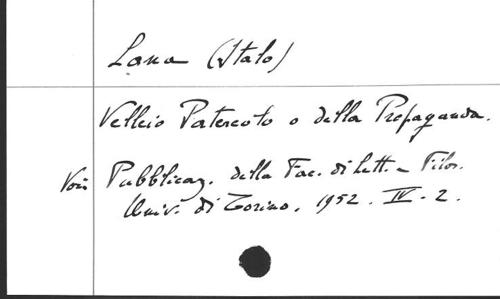 Lana (Italo)
Velleio Patercolo o della Propaganda.
Voir Pubblicaz. della Fac. di Lett. e Filos.
Univ. di Torino. 1952. IV - 2.